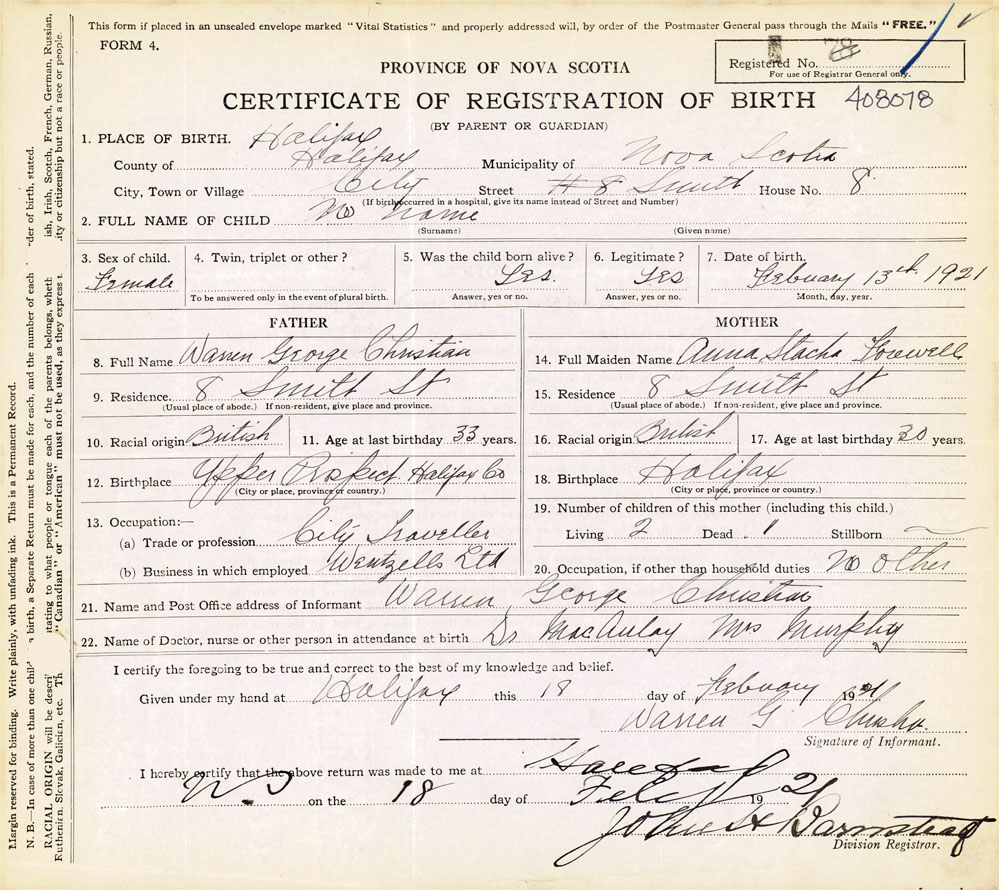 This form if placed in an unsealed envelope marked "Vital Statistics" and properly addressed will, by order of the Postmaster General pass through the Mails "FREE."
FORM 4.
Registered No. 78
For use of Registrar General only.
PROVINCE OF NOVA SCOTIA
CERTIFICATE OF REGISTRATION OF BIRTH 408078
(BY PARENT OR GUARDIAN)
1. PLACE OF BIRTH. Halifax
County of Halifax Municipality of Nova Scotia
City, Town or Village City Street # 8 Smith House No. 8
(If birth occurred in a hospital, give its name instead of Street and Number)
2. FULL NAME OF CHILD No Name
(Surname) (Given name)
3. Sex of child. 4. Twin, triplet or other? 5. Was the child born alive? 6. Legitimate? 7. Date of birth.
Female Yes. Yes Febuary 13th, 1921
To be answered only in the event of plural birth. Answer, yes or no. Answer, yes or no. Month, day, year.
FATHER
8. Full Name Warren George Christian
9. Residence. 8 Smith St
(Usual place of abode.) If non-resident, give place and province.
10. Racial origin British 11. Age at last birthday 33 years.
12. Birthplace Upper Prospect Halifax Co
(City or place, province or country.)
13. Occupation:—
(a) Trade or profession City Traveller
(b) Business in which employed Wentzells Ltd
MOTHER
14. Full Maiden Name Anna Stacha
15. Residence 8 Smith St
(Usual place of abode.) If non-resident, give place and province.
16. Racial origin British 17. Age at last birthday 30 years.
18. Birthplace Halifax
(City or place, province or country.)
19. Number of children of this mother (including this child.)
Living 2 Dead 1 Stillborn —
20. Occupation, if other than household duties No Other
21. Name and Post Office address of Informant Warren George Christian
22. Name of Doctor, nurse or other person in attendance at birth Dr. MacAulay Mrs Murphy
I certify the foregoing to be true and correct to the best of my knowledge and belief.
Given under my hand at Halifax this 18 day of Febuary 1921
Warren G
Signature of Informant.
I hereby certify that the above return was made to me at Halifax
N.S on the 18 day of Feby 1921
John H Barnstead
Division Registrar.
Margin reserved for binding. Write plainly, with unfading ink. This is a Permanent Record.
N. B.—In case of more than one child birth, a Separate Return must be made for each, and the number of each der of birth, stated.
RACIAL ORIGIN will be descri stating to what people or tongue each of the parents belongs, wheth ish, Irish, Scotch, French, German, Russian,
Ruthenian, Slovak, Galician, etc. Th "Canadian" or "American" must not be used, as they express ity or citizenship but not a race or people.